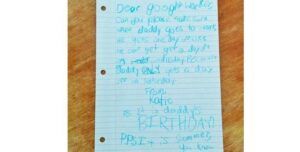 Dear google worker
Can you please make sure
when daddy goes to work
he gets one day off
he can get a day off
on wednesday
daddy ONLY gets a day
off on Saturday
From
Katie
P.S. It is daddy's
BIRTHDAY!
P.P.S. It is summer
you know